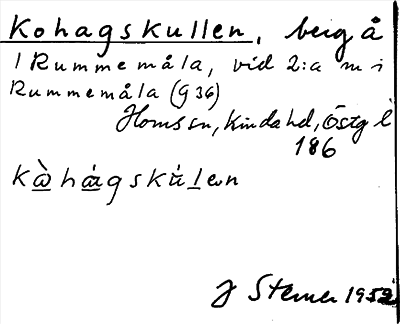 Kohagskullen, berg å
1 Rummemåla, vid 2:a m i
Rummemåla (G 36)
Horns sn, Kinda hd, Östg l
186
kàhágskúlen
J Sterner 1952